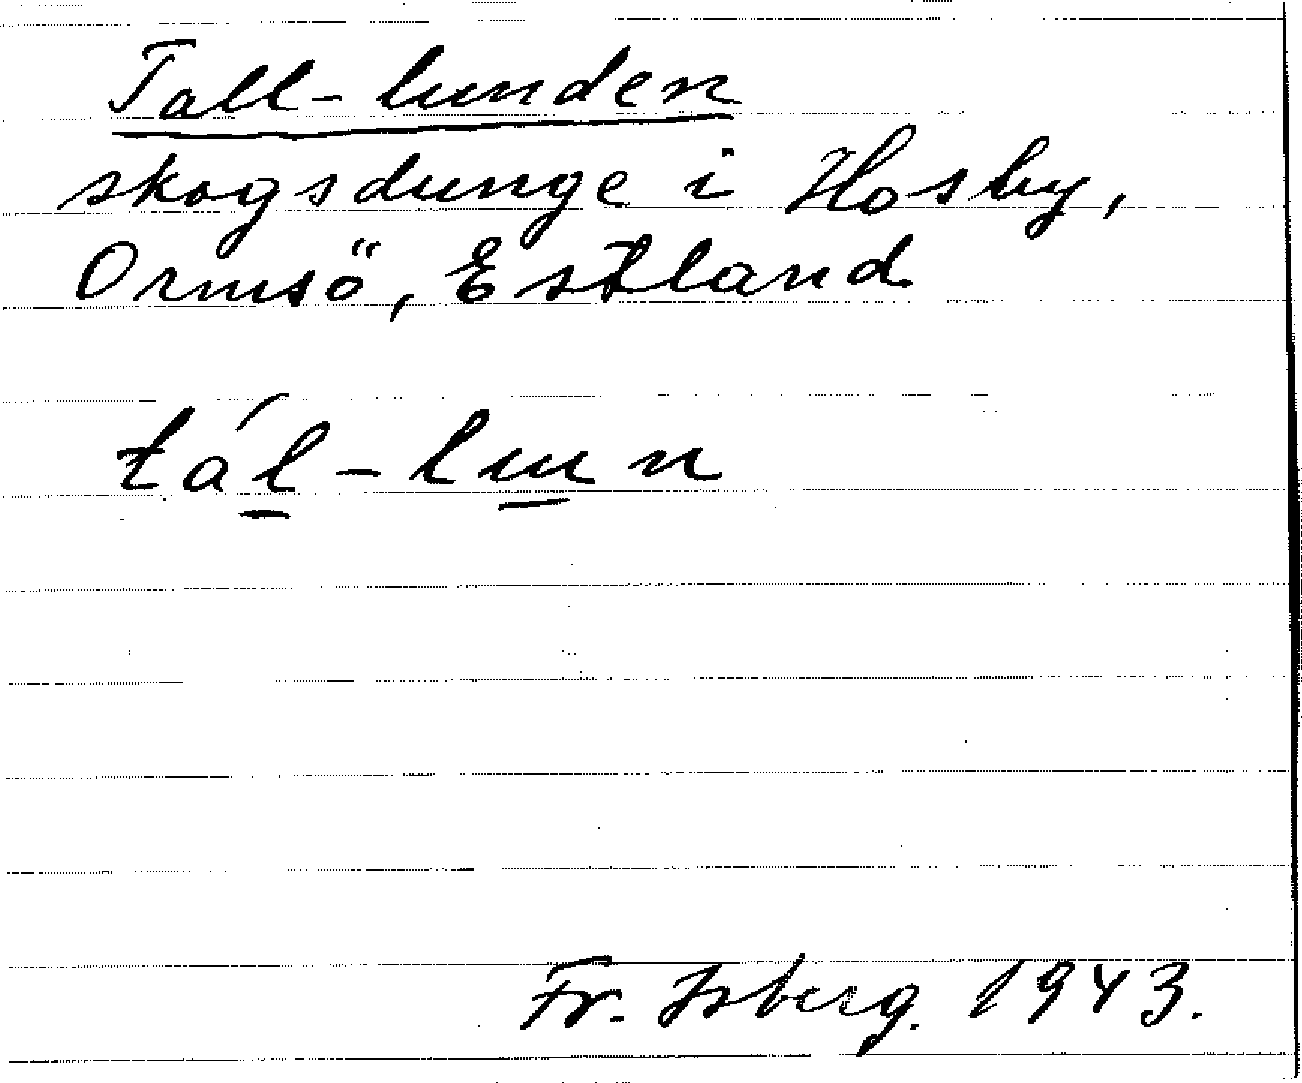 Tall-lunden
skogsdunge i Hosby,
Ormsö, Estland
tál-lun
Fr. Isberg. 1943.